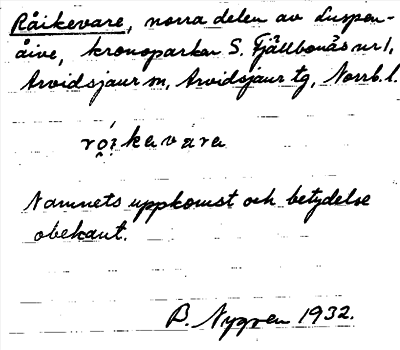 Råikevare, norra delen av Luspen-
åive, kronoparken S. Fjällbonäs nr 1,
Arvidsjaur sn, Arvidsjaur tg, Norrb. l.
rói̯kevàra
Namnets uppkomst och betydelse
obekant.
B. Nygren 1932.